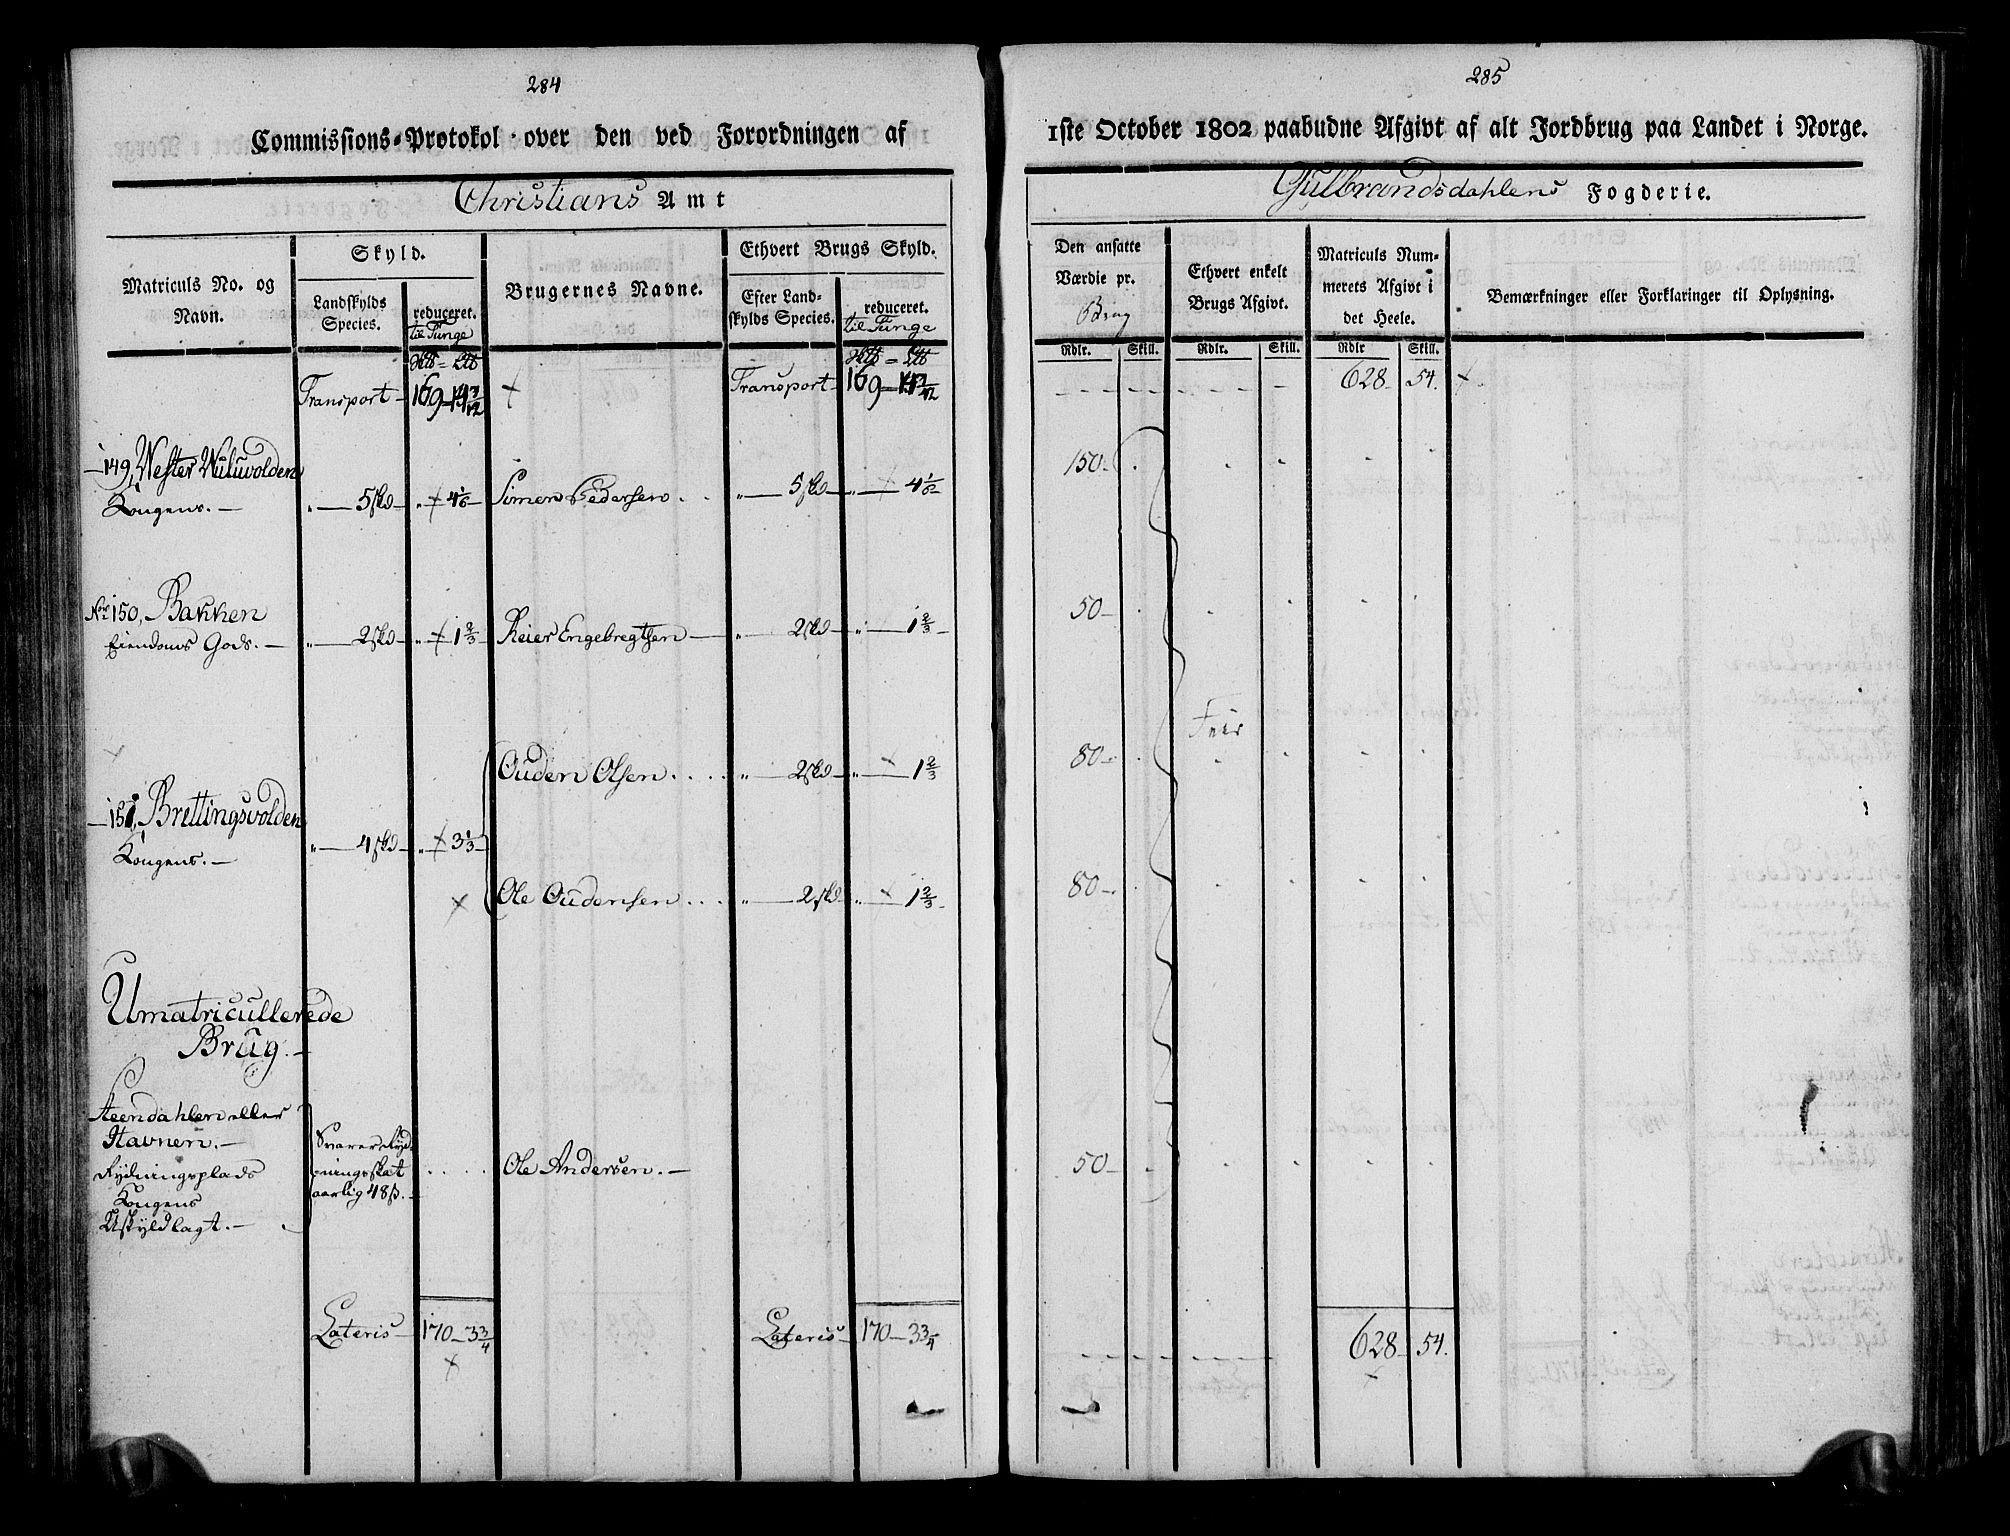 284
Commissions-Protokol over den ved Forordningen af
Christians Amt
Matriculs No. og Navn.
Skyld.
Landskylds Species.
reduceret.
til Tunge
Brugernes Navne.
Ethvert Brugs Skyld.
Efter Landskylds Species.
reduceret.
til Tunge
Transport 169 Transport 169
149, Wester Wuluvolden
Kongens. 5 skd 4 1/6 Simen Pedersen 5 skd 4 1/6
No 150, Bakken
Eiendoms Gods. 2 skd 1 2/3 Reier Engebregtsen 2 skd 1 2/3
Ouden Olsen 2 skd 1 2/3
151, Brettingsvolden
Kongens. 4 skd 3 1/3
Ole Oudensen 2 skd 1 2/3
Umatricullerede
Brug.
Steendahlen eller
Havnen.
Rydningsplads
Kongens
Uskyldlagt.
Svarer Ryd-
ningsskat
aarlig 48 ß.
Ole Andersen.
Lateris 170 3 3/4 Lateris 170 3 3/4
285
1ste October 1802 paabudne Afgivt af alt Jordbrug paa Landet i Norge.
Gulbrandsdahlens Fogderie.
Den ansatte Værdie pr.
Brug
Ethvert enkelt Brugs Afgivt.
Matriculs Nummerets Afgivt i det Heele.
Bemærkninger eller Forklaringer til Oplysning.
Rdlr. Skill. Rdlr. Skill. Rdlr Skill.
628 54.
150
50
Frie
80
80
50
628 54.